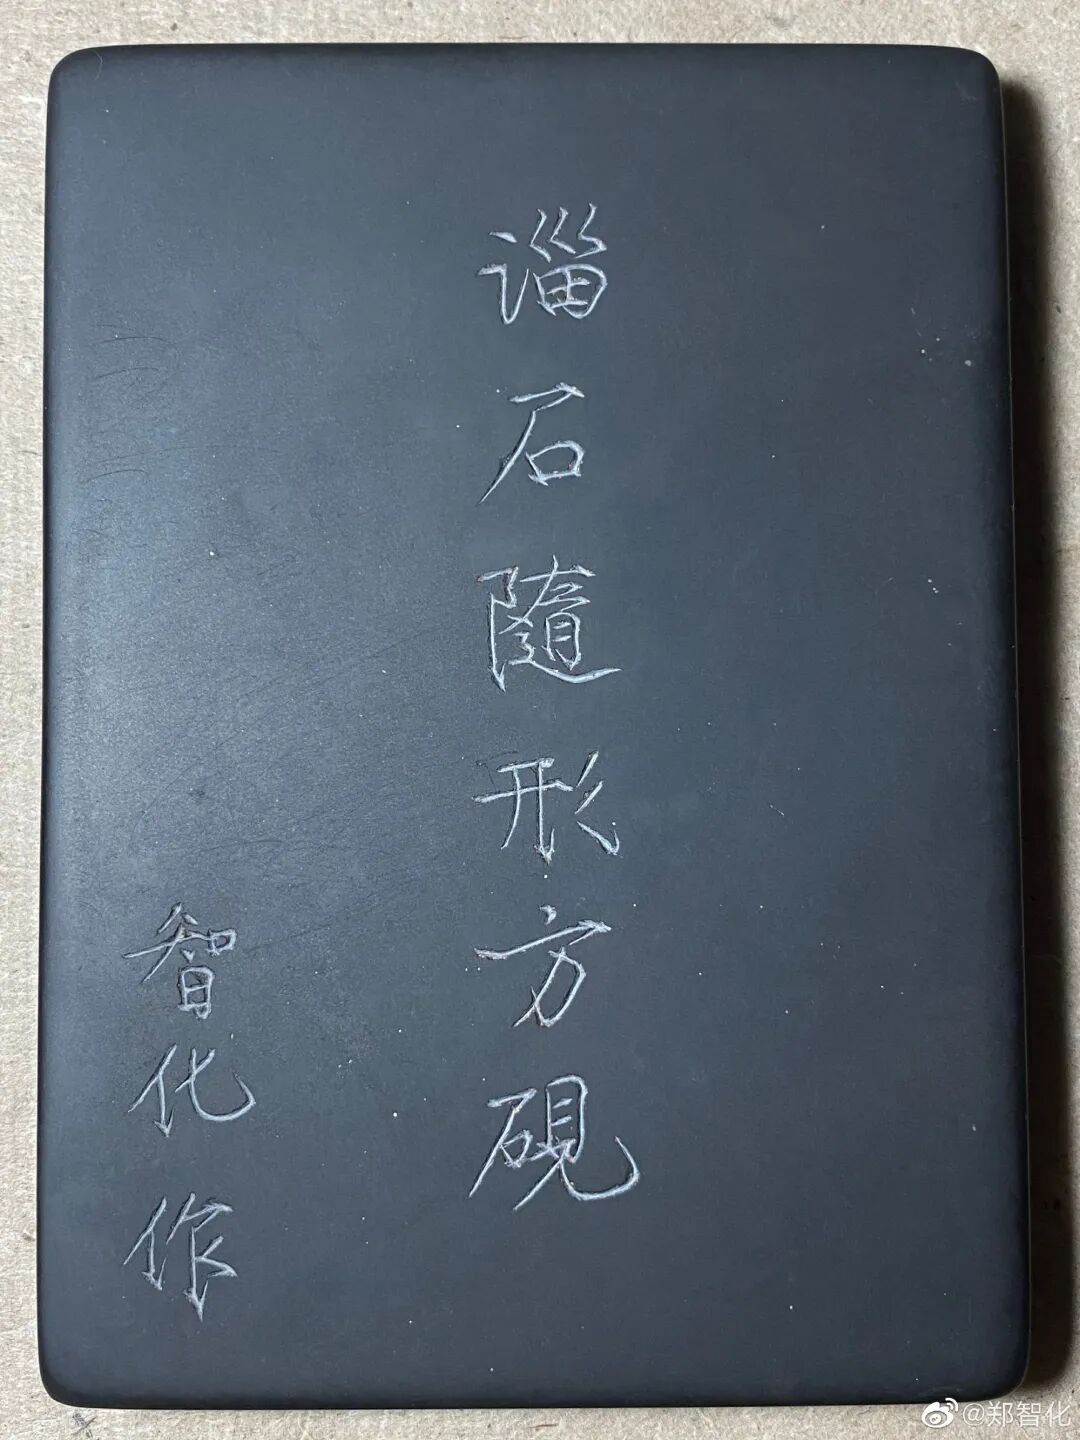 淄石隨形方硯
智化作
@郑智化